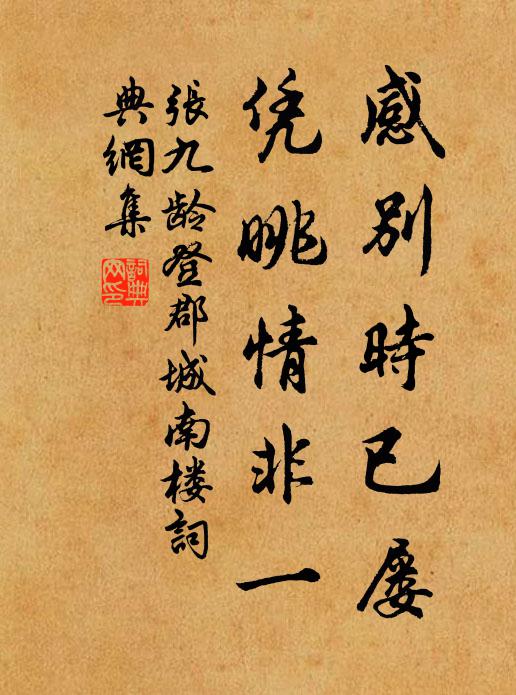 感別時已屡
凭眺情非一
張九龄登郡城南楼詞
典網集
詞典网印